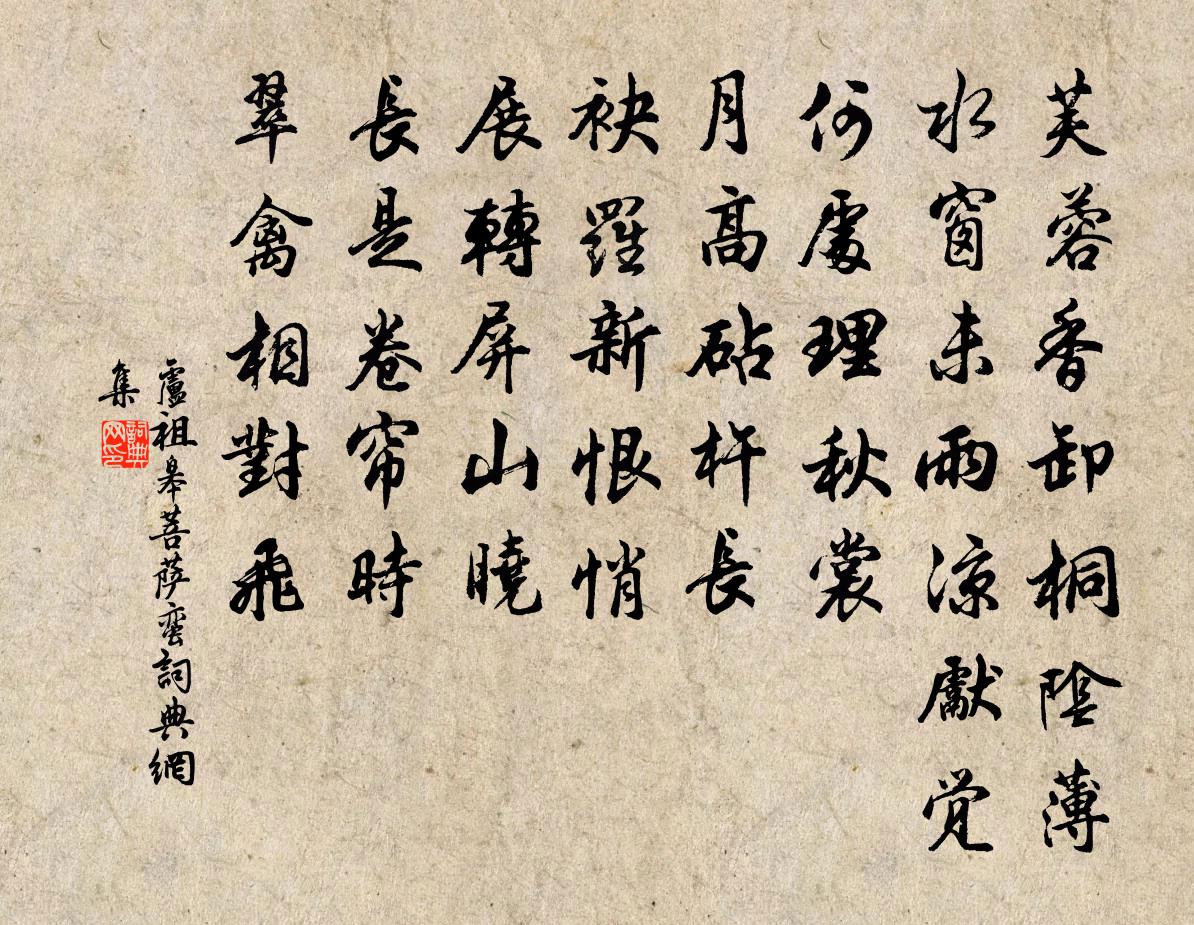 芙蓉香卸桐陰薄
水窗未雨涼獻覚
何處理秋裳
月高砧杵長
袂羅新恨悄
展轉屏山曉
長是卷帘時
翠禽相對飛
盧祖皋菩薩蛮詞典網
集
詞典
网印